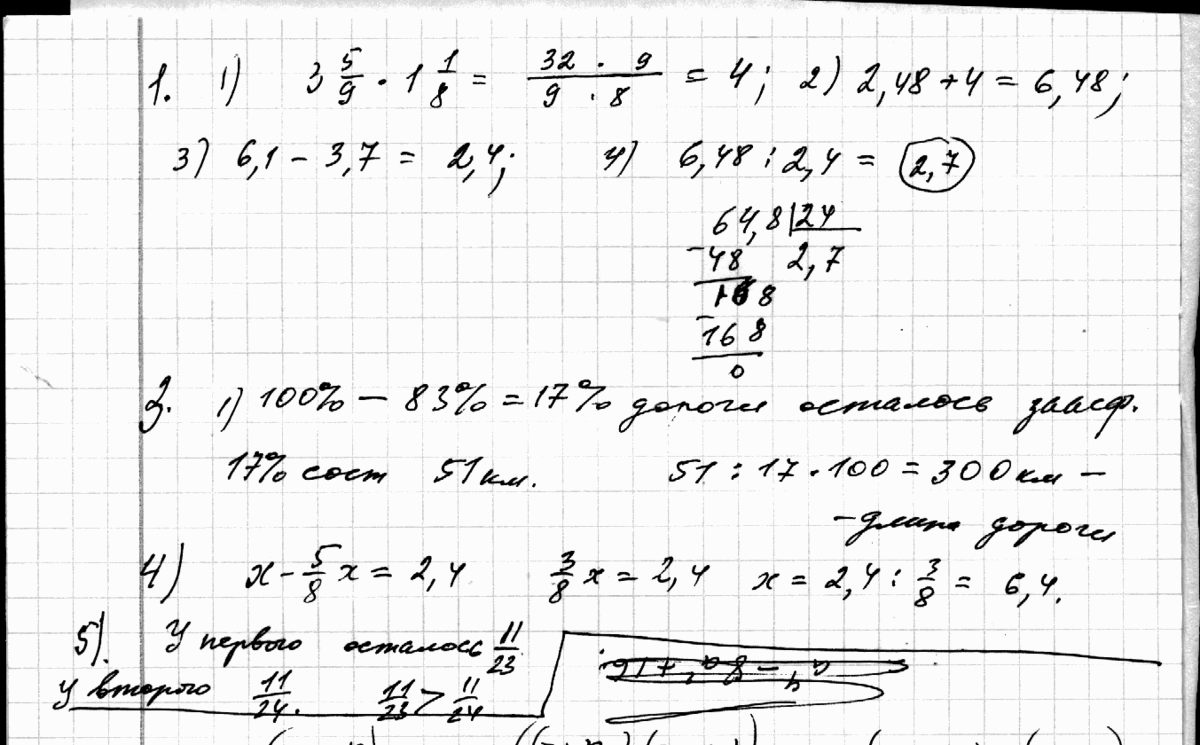 1. 1) 3 5/9 · 1 1/8 = (32 · 9)/(9 · 8) = 4; 2) 2,48 + 4 = 6,48;
3) 6,1 − 3,7 = 2,4; 4) 6,48 : 2,4 = 2,7
64,8 | 24
− 48 2,7
168
− 168
0
2. 1) 100% − 83% = 17% дороги осталось заасф.
17% сост 51 км. 51 : 17 · 100 = 300 км −
− длина дороги
4) x − 5/8 x = 2,4 3/8 x = 2,4 x = 2,4 : 3/8 = 6,4.
5). У первого осталось 11/23
У второго 11/24. 11/23 > 11/24